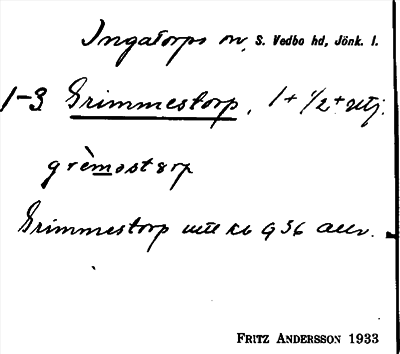 Ingatorps sn, S. Vedbo hd, Jönk. l.
1-3 Grimmestorp, 1 + 1/2 + utj.
grèmostorp
Grimmestorp
FRITZ ANDERSSON 1933